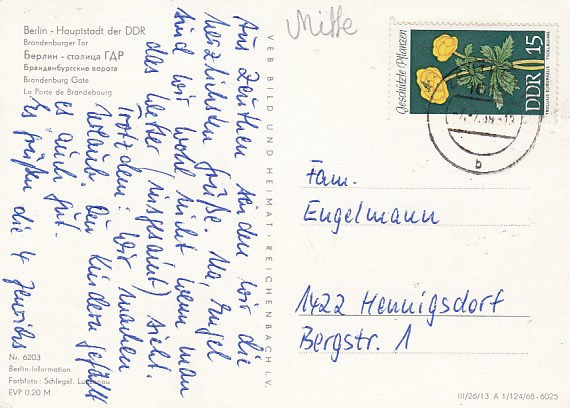 Berlin - Hauptstadt der DDR
Brandenburger Tor
Берлин - столица ГДР
Бранденбургские ворота
Brandenburg Gate
La Porte de Brandebourg
Aus Zeuthen senden wir die
herzlichsten Grüße. Na, Engel
sind wir wohl nicht wenn man
das Wetter (insgesamt) sieht.
Trotzdem: wir machen
Urlaub. Den Kindern gefällt
es auch gut.
Es grüßen die 4
Nr. 6203
Berlin-Information
Farbfoto: Schlegel,
EVP 0.20 M
VEB BILD UND HEIMAT - REICHENBACH i. V.
Mitte
Geschützte Pflanzen
TROLLIUS EUROPAEUS TROLLBLUME
DDR 15
b
Fam.
Engelmann
1422 Hennigsdorf
Bergstr. 1
III/26/13 A 1/124/68-6025